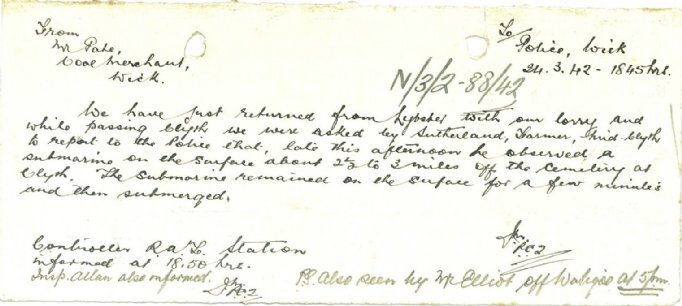 From
Mr Pate,
Coal Merchant,
Wick.
To/
Police, Wick
24.3.42 - 1845 hrs.
N/3/2-88/42
We have just returned from Lybster with our lorry and
while passing Clyth we were asked by Sutherland, Farmer, Mid Clyth
to report to the Police that, late this afternoon he observed a
submarine on the surface about 2½ to 3 miles off the cemetery at
Clyth. The submarine remained on the surface for a few minutes
and then submerged.
P.C.2
Controller R.a/L. Station
informed at 18.50 hrs.
Insp. Allan also informed.
P.C.2
PS. Also seen by Mr Elliot off Watigar at 5pm.